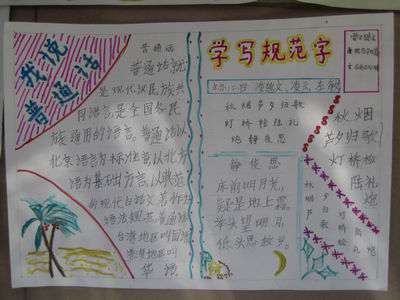 我说
普通话
普通话
普通话就
是现代汉民族共
同语言是全国各民
族通用的语言。普通话以
北京语言为标准音以北方
话为基础方言,以典范
的现代白话文著作为
语法规范。普通话
台湾地区叫国语
港澳地区叫
华语
学写规范字
秋烟芦夕归歌
灯桥检陆礼
炮静夜思
静夜思
床前明月光,
疑是地上霜。
举头望明月,
低头思故乡。
秋烟
芦夕归歌
灯桥检
陆礼
炮
秋烟芦
夕归歌
灯桥检
陆礼
炮